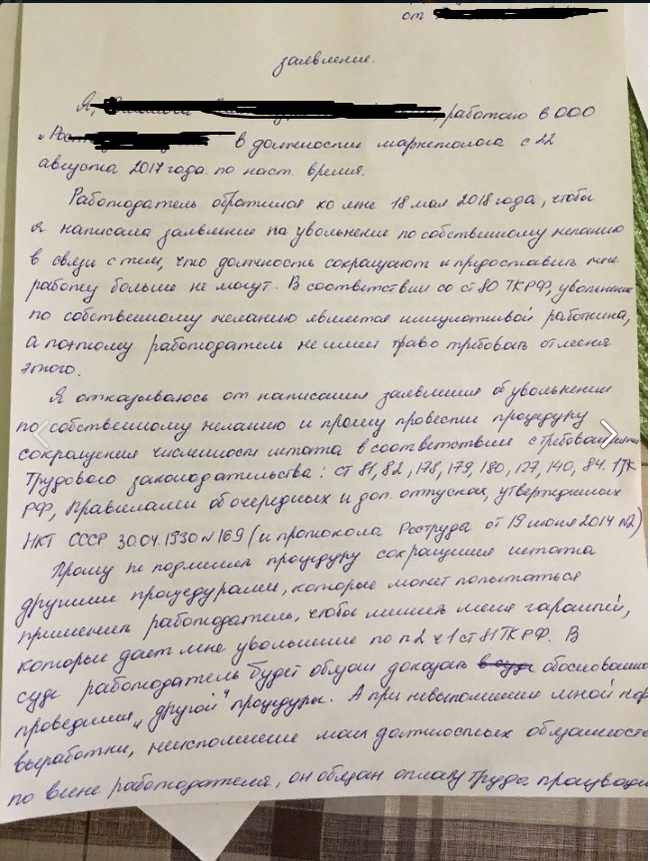 от
заявление.
Я, работаю в ООО
в должности маркетолога с 22
августа 2017 года. по наст. время.
Работодатель обратился ко мне 18 мая 2018 года, чтобы
я написала заявление на увольнение по собственному желанию
в связи с тем, что должность сокращают и предоставить мне
работу больше не могут. В соответствии со ст 80 ТК РФ, увольнение
по собственному желанию является инициативой работника,
а поэтому работодатель не имеет право требовать от меня
этого.
Я отказываюсь от написания заявления об увольнении
по собственному желанию и прошу провести процедуру
сокращения численности штата в соответствие с требованиями
Трудового законодательства: ст 81, 82, 178, 179, 180, 127, 140, 84.1 ТК
РФ, Правилами об очередных и доп. отпусках, утвержденных
НКТ СССР 30.04.1930 N 169 (и протокола Роструда от 19 июня 2014 N2)
Прошу не подменять процедуру сокращения штата
другими процедурами, которые может попытаться
применить работодатель, чтобы лишить меня гарантий,
которые дает мне увольнение по п2 ч1 ст 81 ТК РФ. В
суде работодатель будет обязан доказать обоснованно
проведения "другой" процедуры. А при невыполнении мной нор
выработки, неисполнение моих должностных обязанносте
по вине работодателя, он обязан оплату труда производи